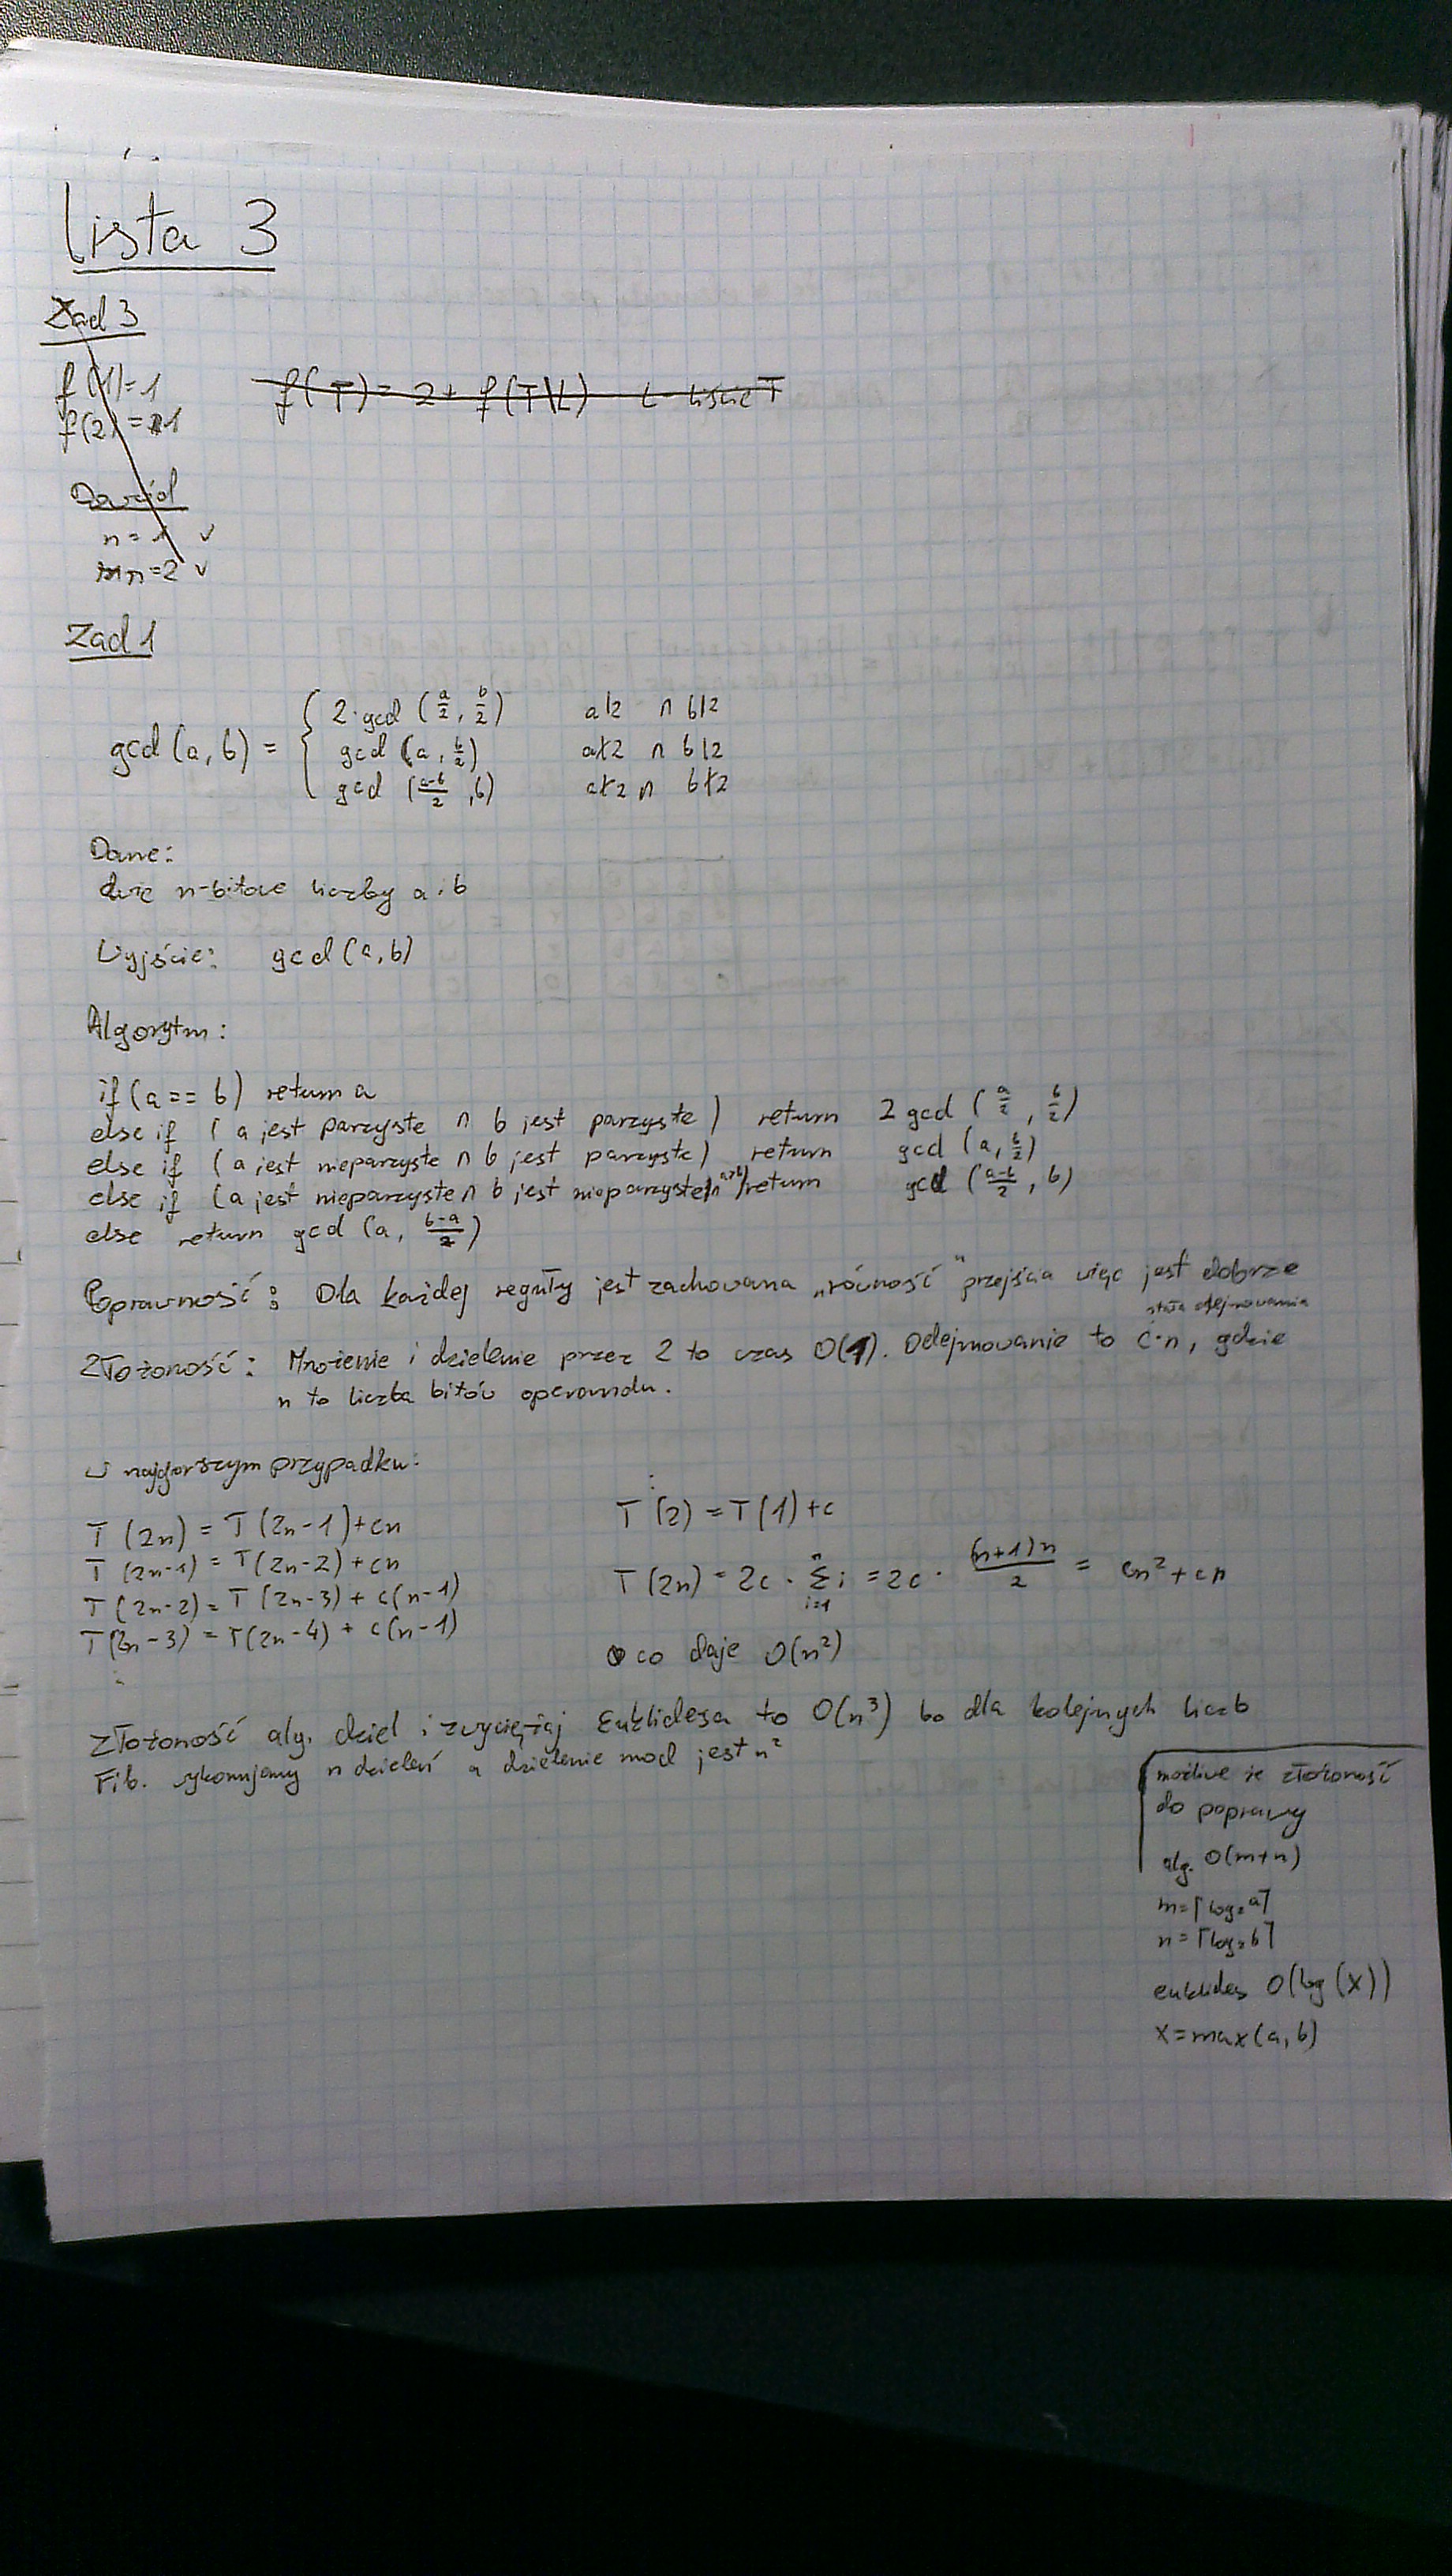 Lista 3
Zad 3
f(1)=1
f(2)=1
f(T)= 2+ f(T\L) L-liście T
Dowód
n=1 ✓
n=2 ✓
Zad 1
gcd(a,b) = { 2·gcd(a/2, b/2) a|2 ∩ b|2
gcd(a, b/2) a∤2 ∩ b|2
gcd((a-b)/2, b) a∤2 ∩ b∤2
Dane:
dwie n-bitowe liczby a i b
Wyjście: gcd(a,b)
Algorytm:
if(a==b) return a
else if (a jest parzyste ∩ b jest parzyste) return 2gcd(a/2, b/2)
else if (a jest nieparzyste ∩ b jest parzyste) return gcd(a, b/2)
else if (a jest nieparzyste ∩ b jest nieparzyste ∩ a>b) return gcd((a-b)/2, b)
else return gcd(a, (b-a)/2)
Poprawność: Dla każdej reguły jest zachowana „równość" przejścia więc jest dobrze
stała odejmowania
Złożoność: Mnożenie i dzielenie przez 2 to czas O(1). Odejmowanie to c·n, gdzie
n to liczba bitów operandu.
W najgorszym przypadku:
T(2n) = T(2n-1)+cn
T(2n-1) = T(2n-2)+cn
T(2n-2) = T(2n-3) + c(n-1)
T(2n-3) = T(2n-4) + c(n-1)
⋮
T(2) = T(1)+c
T(2n) = 2c · Σ_{i=1}^{n} i = 2c · (n+1)n/2 = cn²+cn
co daje O(n²)
Złożoność alg. dziel i zwyciężaj Euklidesa to O(n³) bo dla kolejnych liczb
Fib. wykonujemy n dzieleń a dzielenie mod jest n²
możliwe że złożoność
do poprawy
alg. O(m+n)
m=⌈log₂a⌉
n=⌈log₂b⌉
euklides O(log(x))
x=max(a,b)